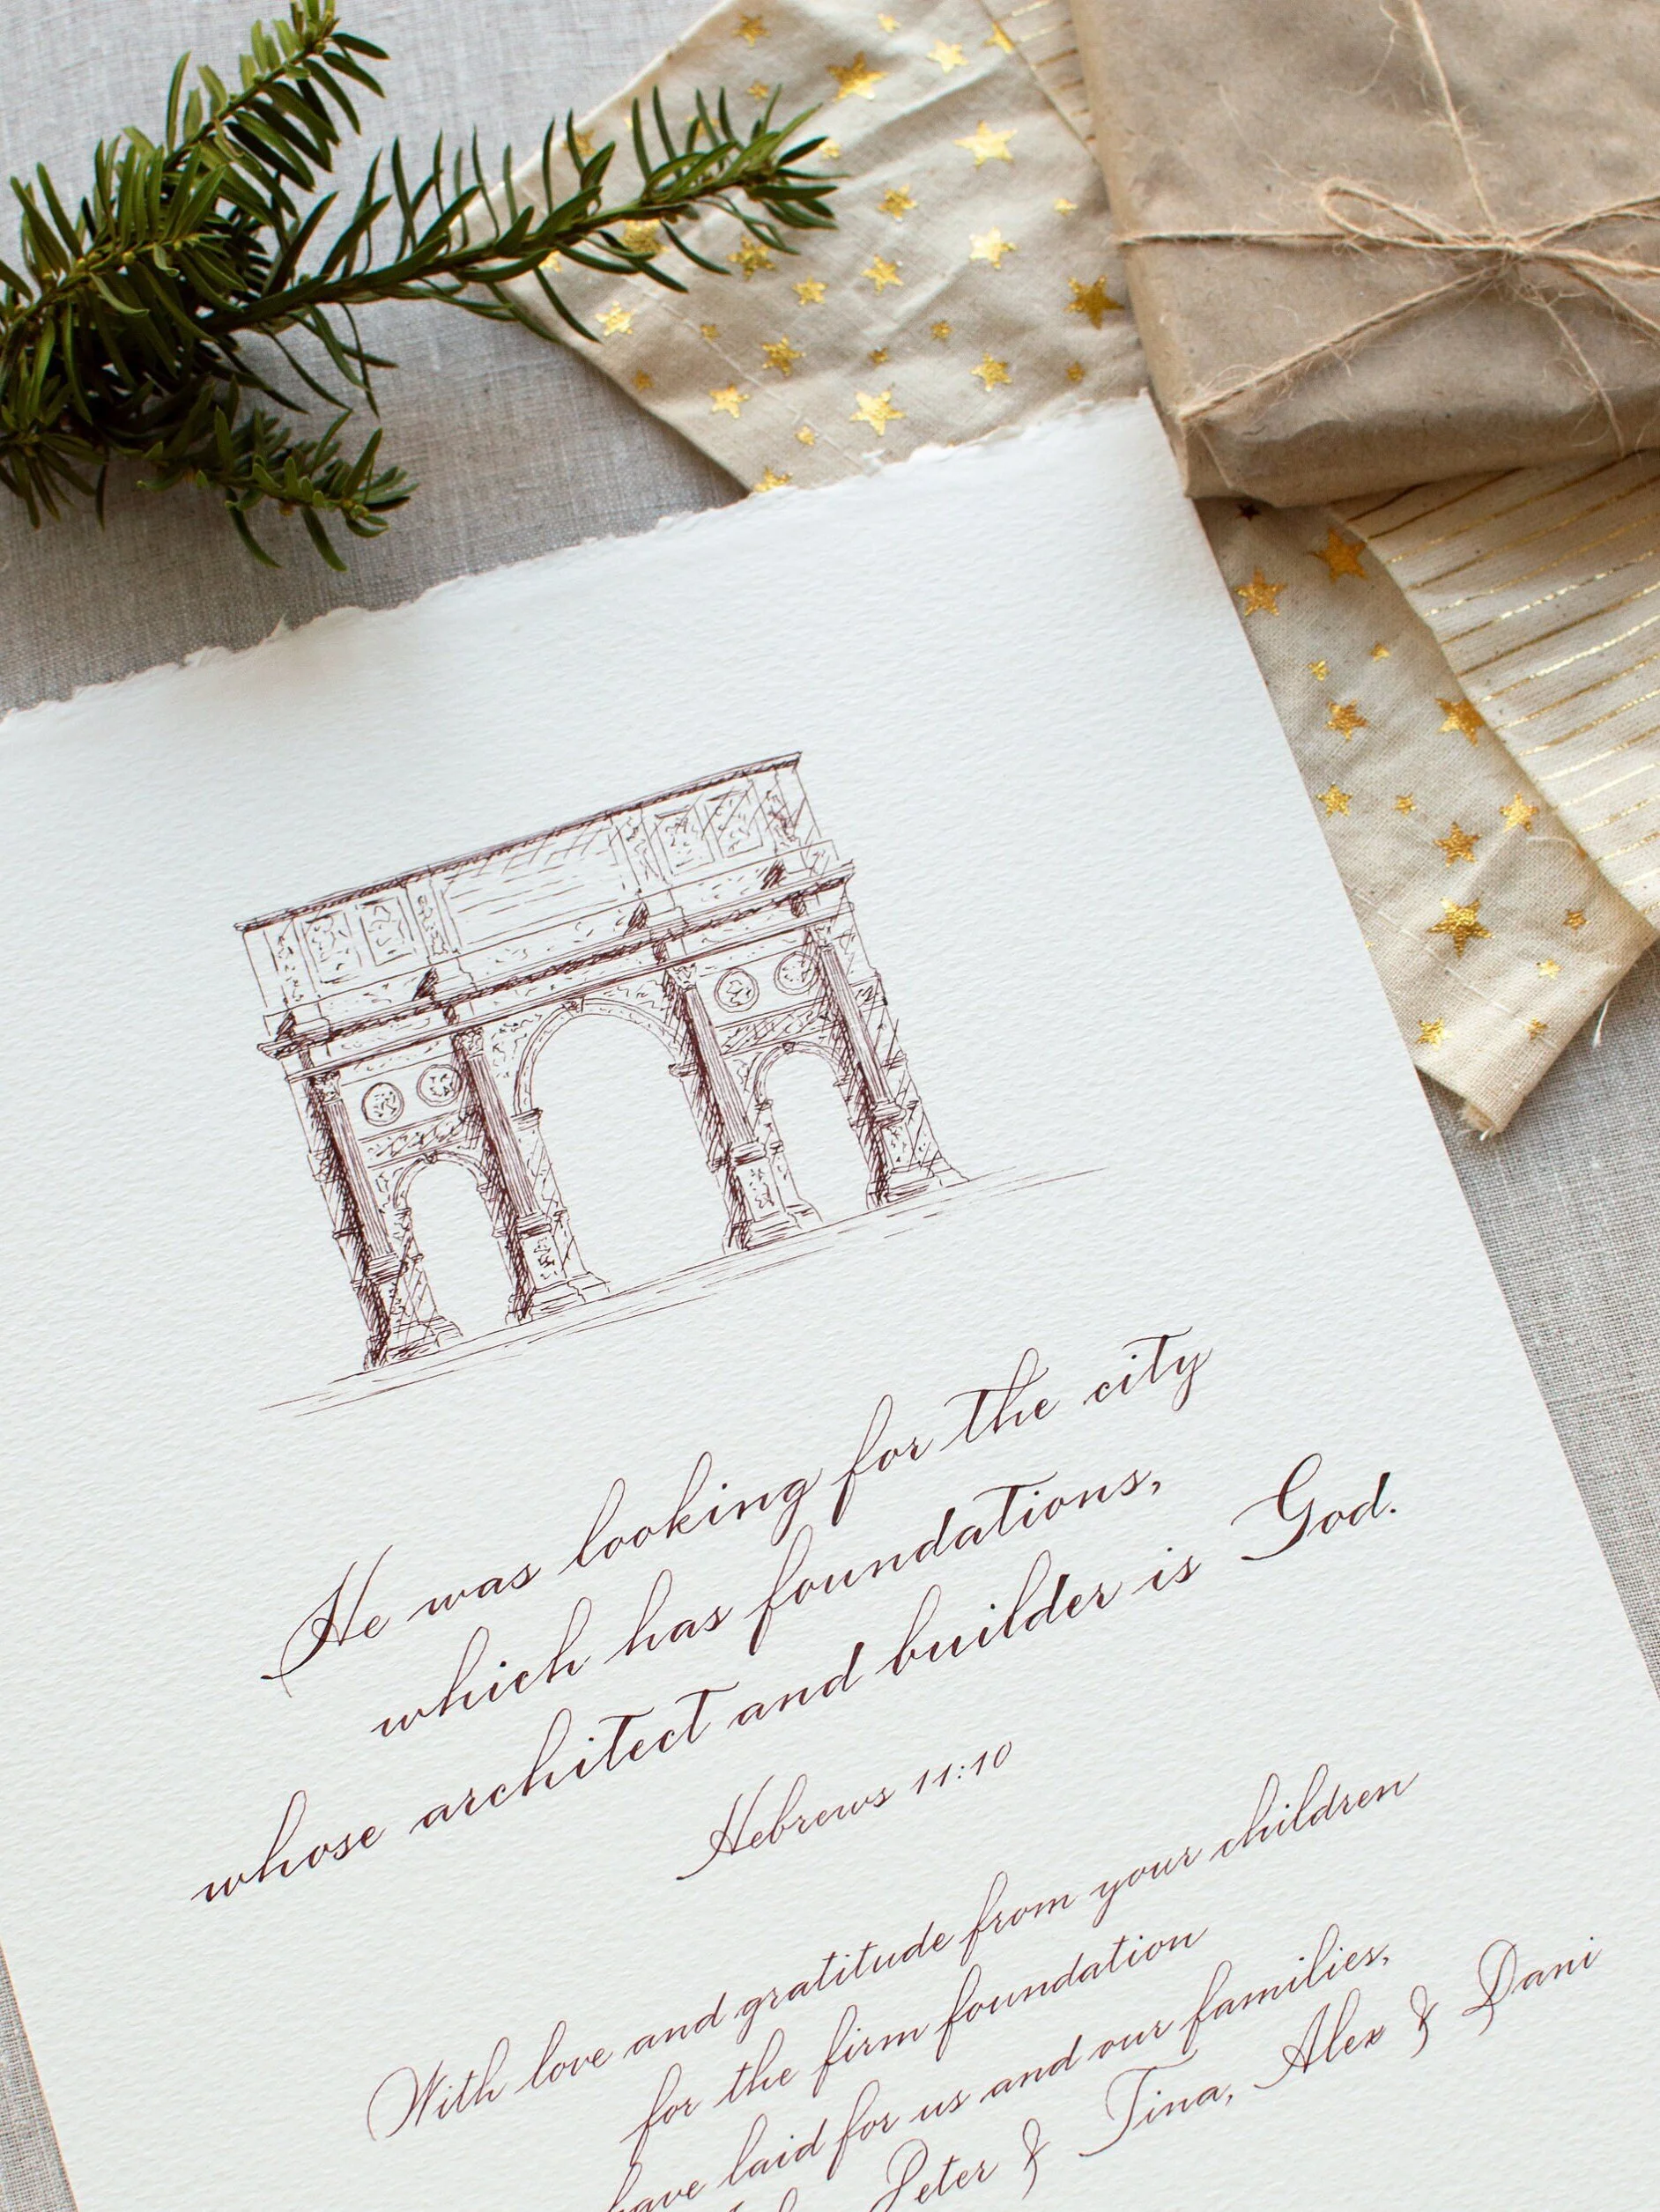 He was looking for the city
which has foundations,
whose architect and builder is God.
Hebrews 11:10
With love and gratitude from your children
for the firm foundation
have laid for us and our families,
Peter & Tina, Alex & Dani